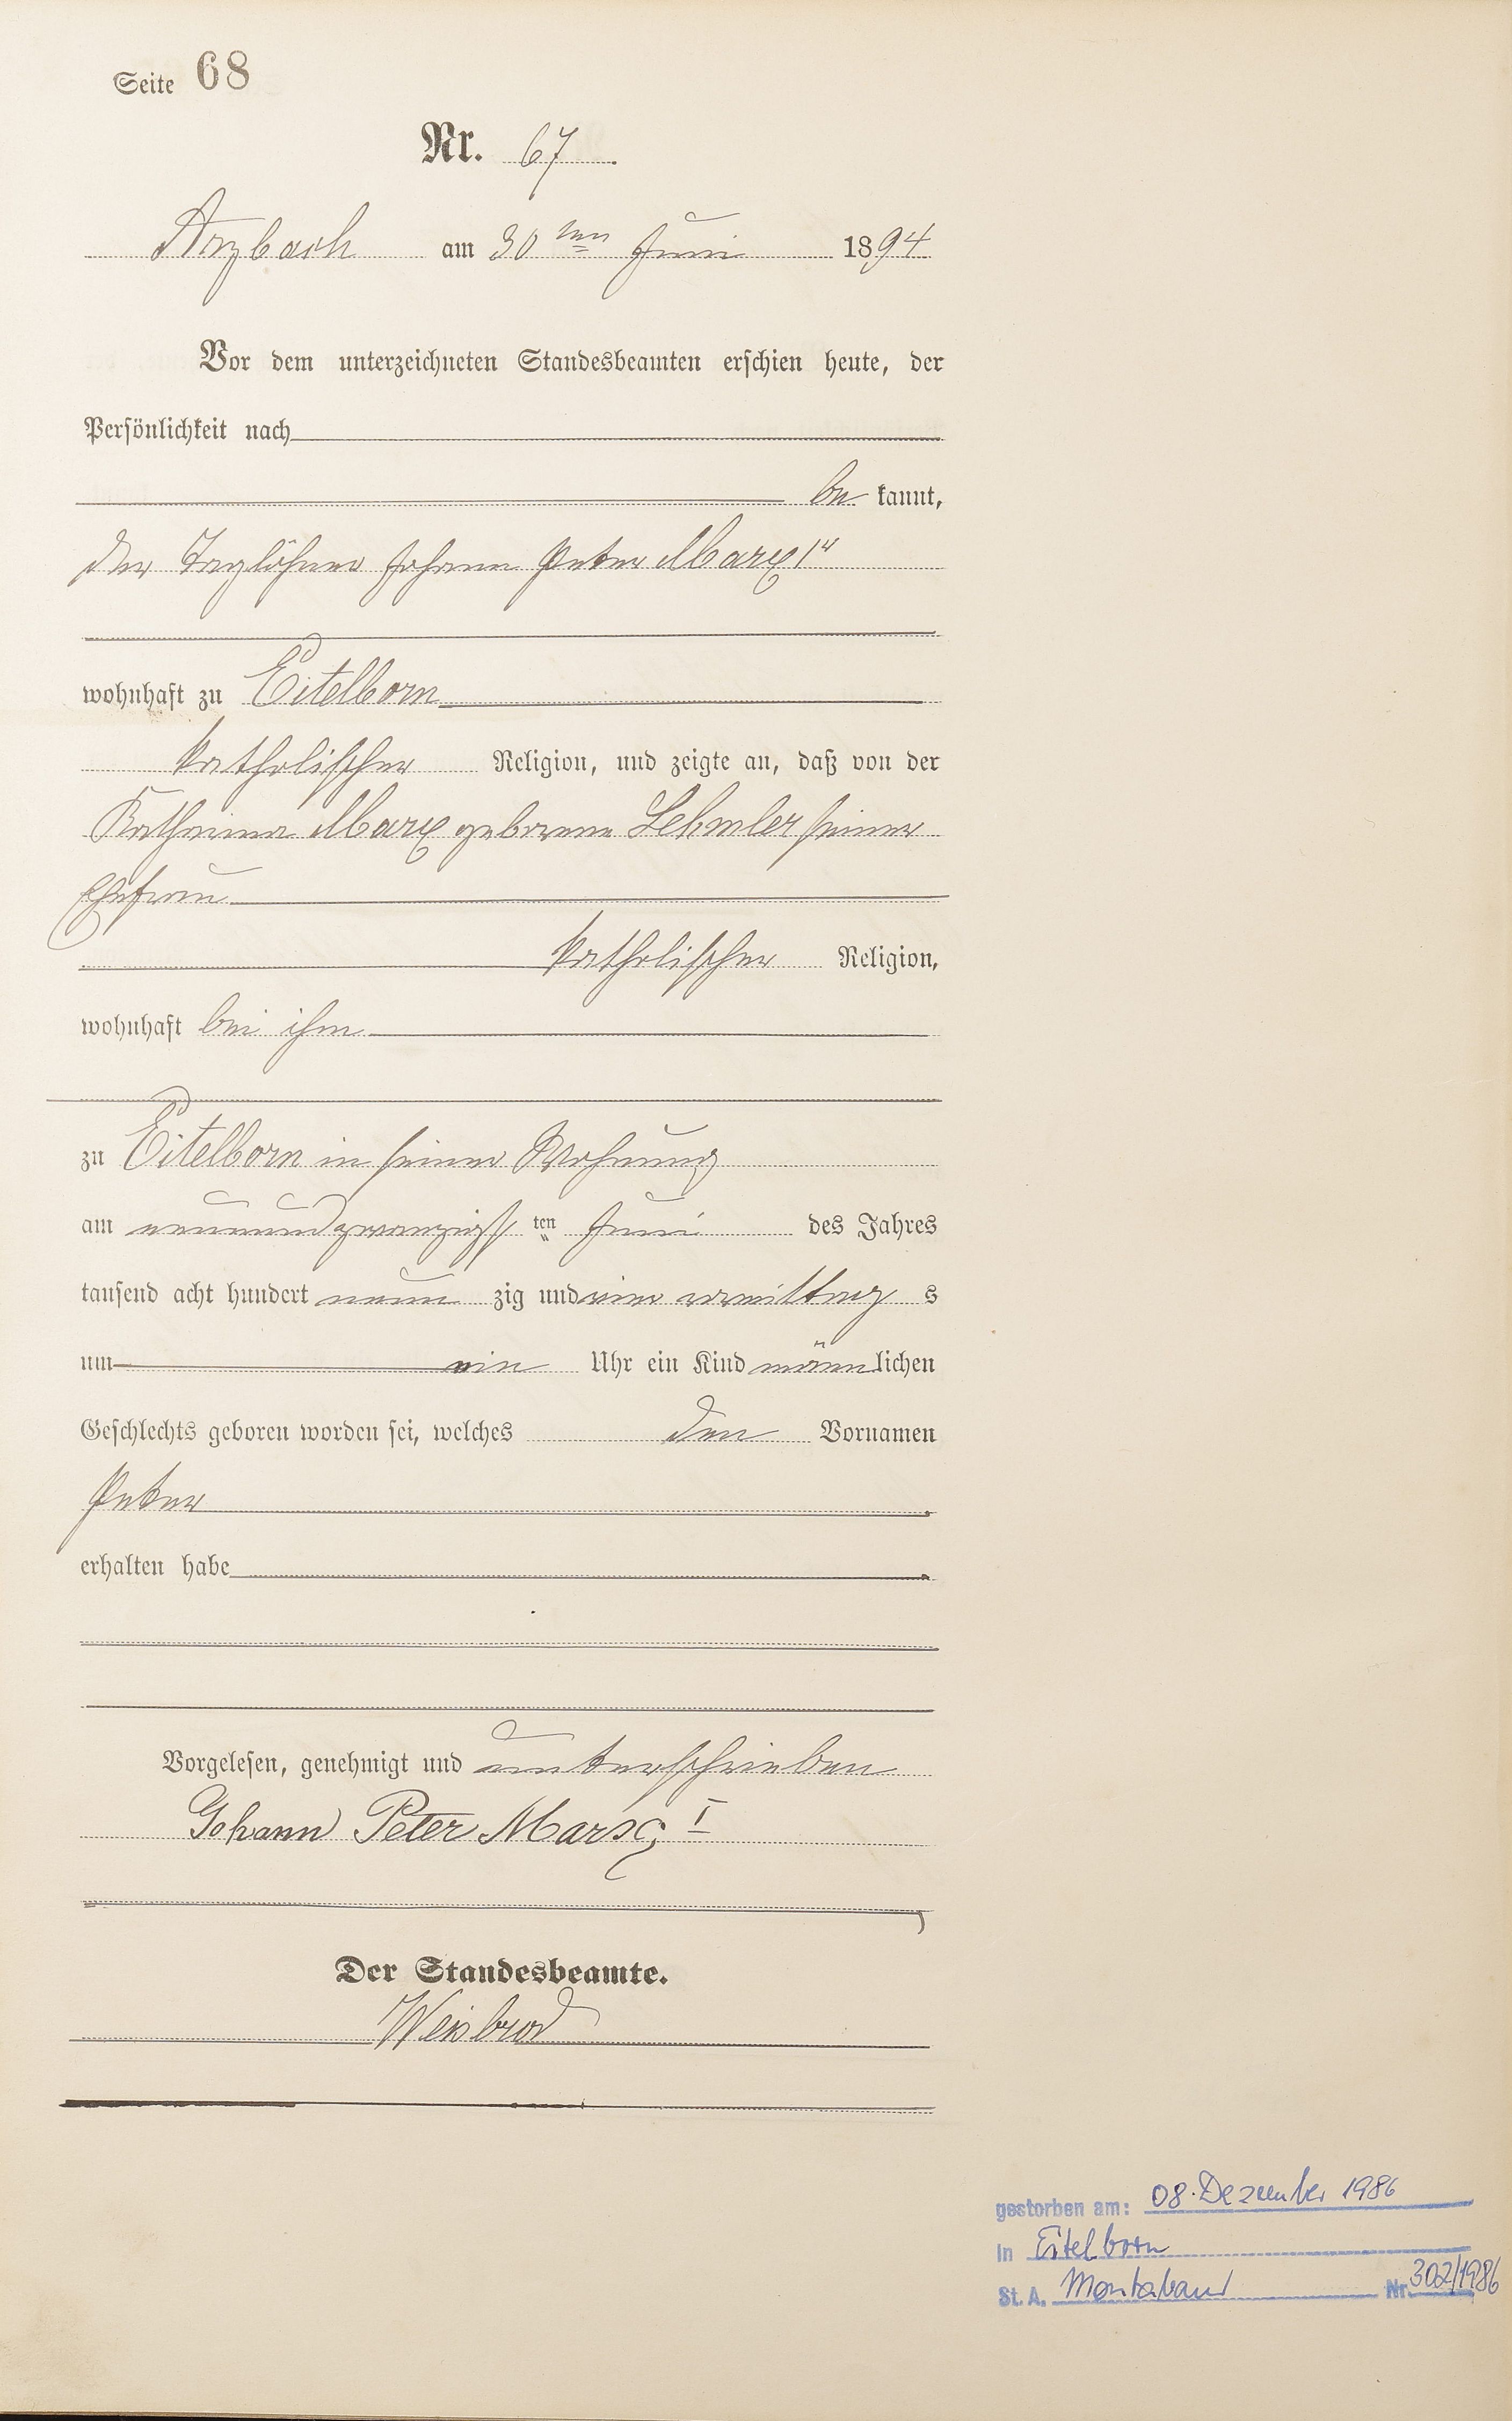 Seite 68
Nr. 67.
Arzbach am 30ten Juni 1894
Vor dem unterzeichneten Standesbeamten erschien heute, der
Persönlichkeit nach
be kannt,
der Taglöhner Johann Peter Marx 1r
wohnhaft zu Eitelborn
katholischer Religion, und zeigte an, daß von der
Katharina Marx geborene Lehmler seiner
Ehefrau
katholischer Religion,
wohnhaft bei ihm
zu Eitelborn in seiner Wohnung
am neunundzwanzigsten Juni des Jahres
tausend acht hundert neun zig und vier vormittag s
um ein Uhr ein Kind männlichen
Geschlechts geboren worden sei, welches den Vornamen
Peter
erhalten habe
Vorgelesen, genehmigt und unterschrieben
Johann Peter Marx I
Der Standesbeamte.
Weisbrod
gestorben am: 08. Dezember 1986
in Eitelborn
St. A. Montabaur Nr. 302/1986